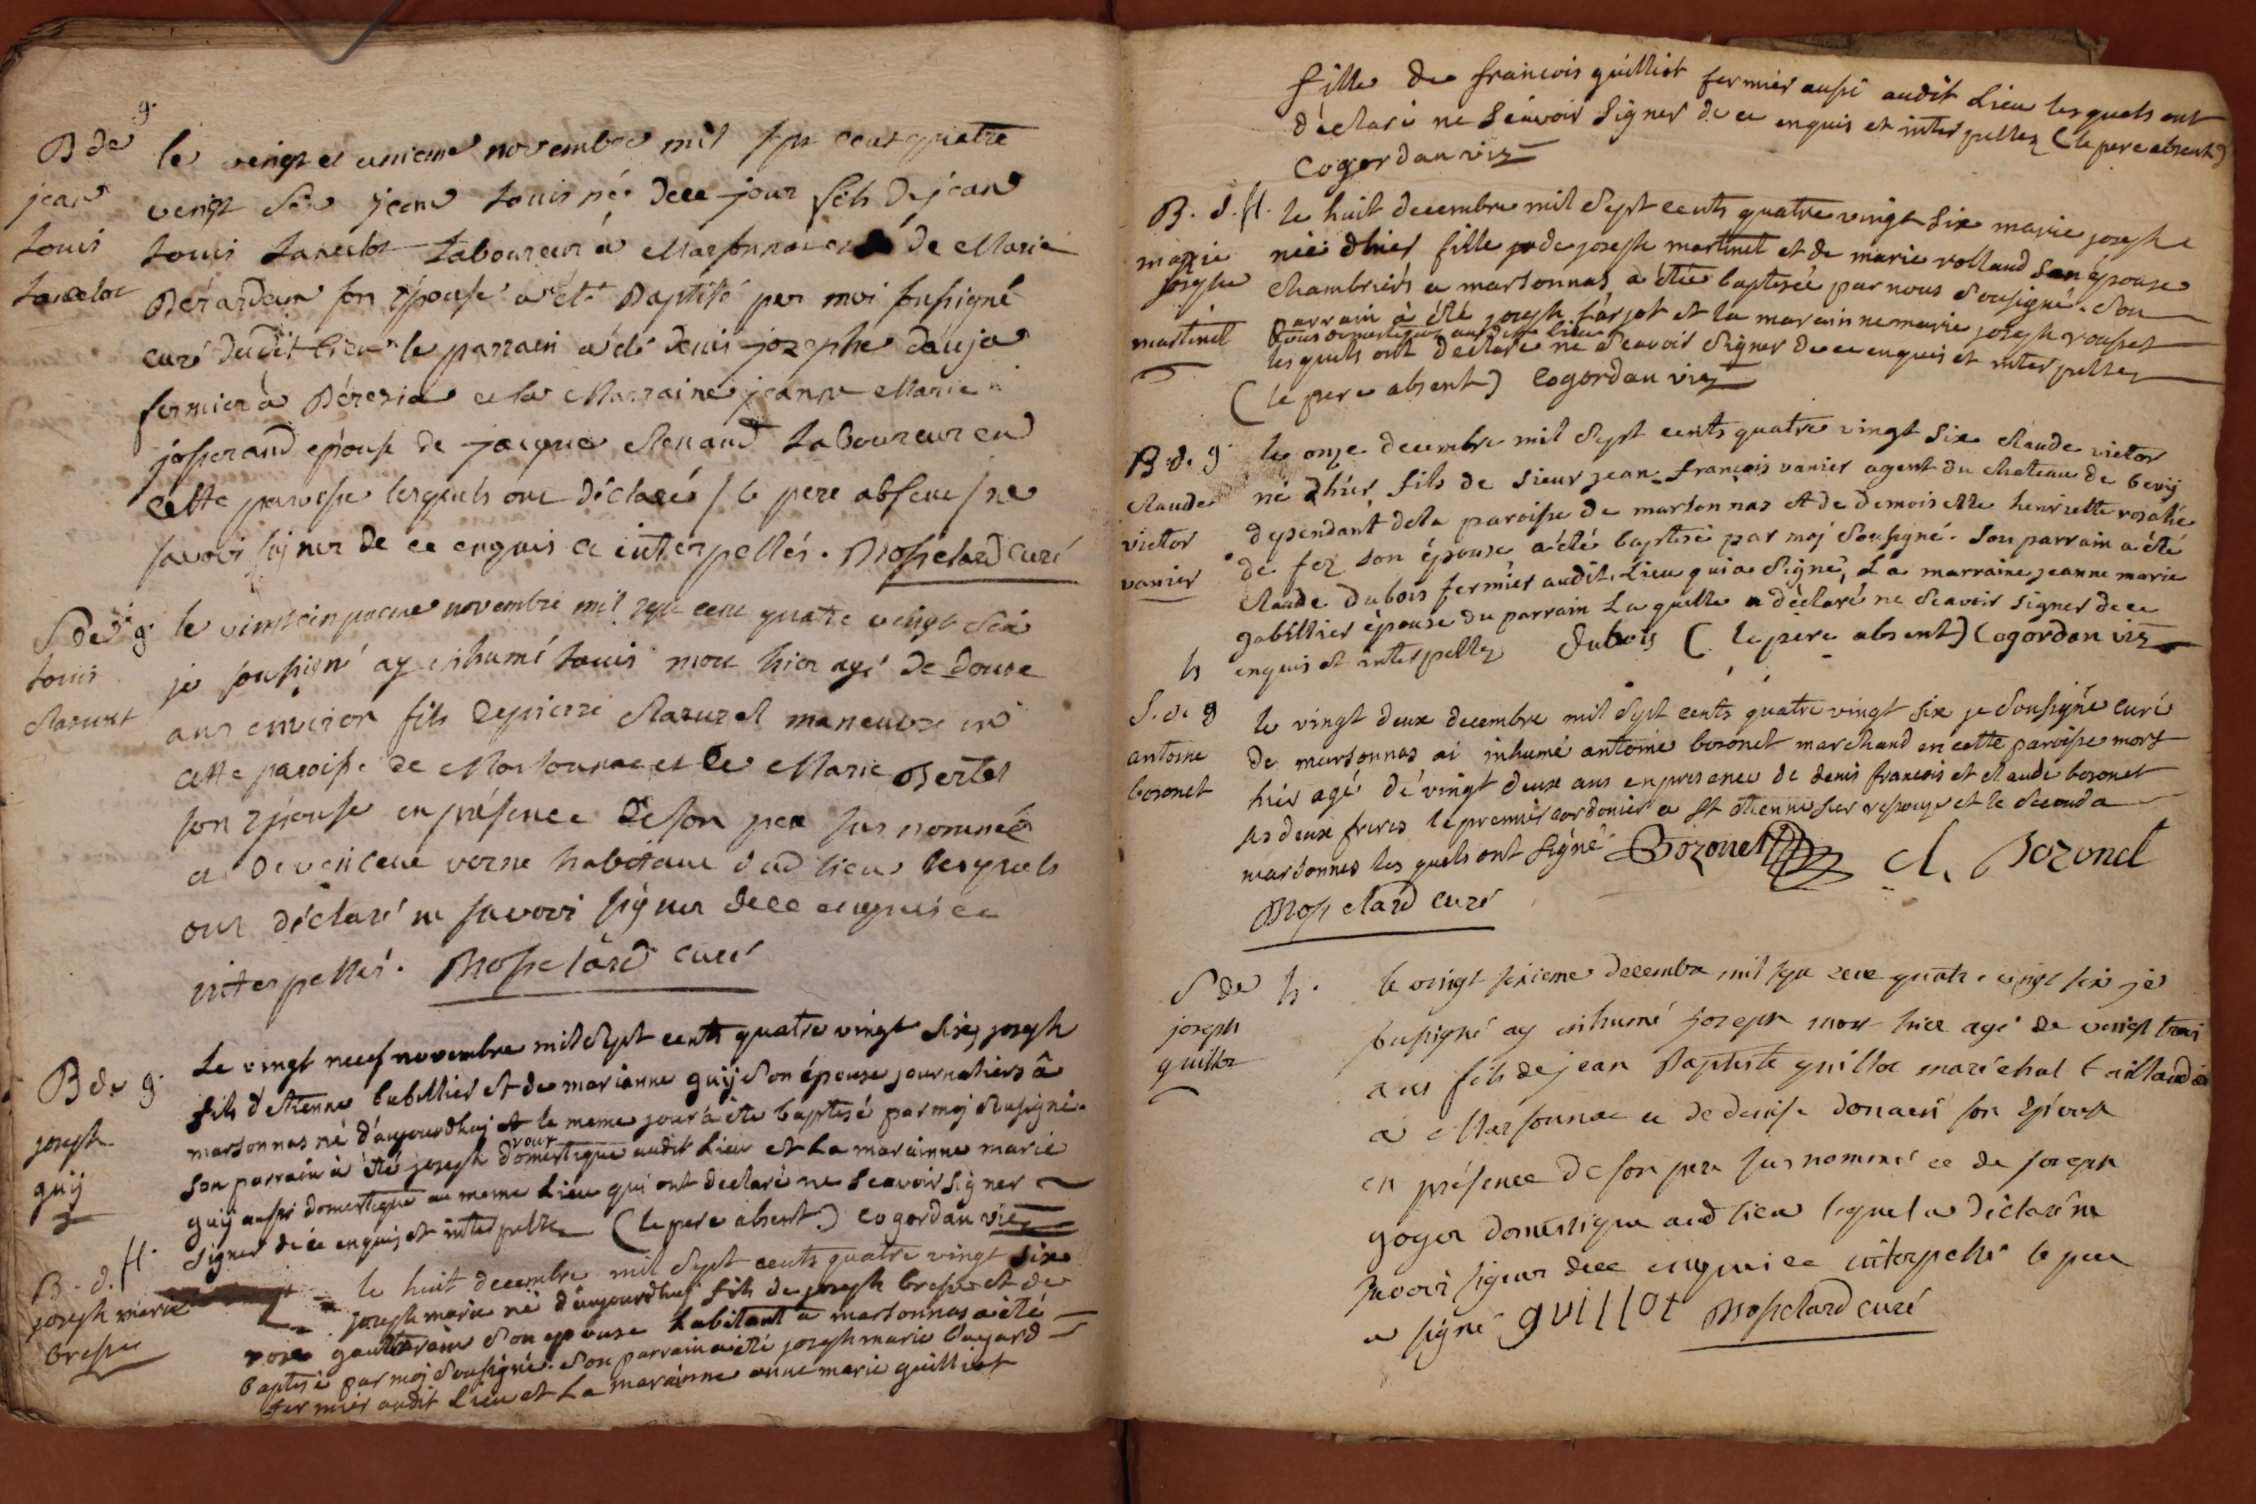 B de g.
jean
Louis
Lancelot
le vingt et unieme novembre mil sept cent quatre
vingt six jean Louis né de ce jour fils de jean
Louis Lancelot Laboureur à Marsonnac et de Marie
Bérardeur son épouse a été Baptisé par moi soussigné
curé dudit lieu le parrain a été denis josephe dauja
fermier à Béresia et la Marraine jeanne Marie
josserand epouse de jacque Renaud Laboureur en
cette paroisse lesquels ont déclaré / le pere absent / ne
savoir signer de ce enquis et interpellés. Mosselard curé
S de g.
Louis
Mazuret
le vint cinquieme novembre mil sept cent quatre vingt six
je soussigné ay inhumé Louis mort hier agé de douze
ans environ fils de pierre Mazuret maneuvre en
cette paroisse de Marsonnac et de Marie Bertet
son epouse en présence de son pere sus nommé
et de vincent verne habitant dud lieu lesquels
ont déclaré ne savoir signer de ce enquis et
interpellés. Mosselard curé
B de g.
joseph
guij
Le vingt neuf novembre mil sept cents quatre vingt six, joseph
fils d'etienne bubillier et de marianne guij son épouse journaliers à
marsonnas né d'aujourdhuj et le meme jour a été baptisé par moj soussigné.
son parrain à été joseph roux domestique audit lieu et la marainne marie
guij aussi domestique au meme lieu qui ont declaré ne sçavoir signer
signer de ce enquis et interpellez (le pere absent.) cogordan vic
B. d. f.
joseph marie
bresse
le huit decembre mil sept cents quatre vingt six
joseph marie né d'aujourdhuj fils de joseph bresse et de
rose gautherain son epouse habitant a marsonnas a été
baptisé par moj soussigné. son parrain a été joseph marie buyard
fermier audit lieu et la marainne anne marie guilliot
fille de francois guilliot fermier aussi audit lieu lesquels ont
déclaré ne sçavoir signer de ce enquis et interpellez (le pere absent)
cogordan vic
B. d. f.
marie
josephe
martinet
le huit decembre mil sept cents quatre vingt six marie josephe
née dhier fille de joseph martinet et de marie rolland son épouse
chambriers a marsonnas a étée baptisée par nous soussigné. son
parrain à été joseph farjot et la marainne marie joseph rousset
tous domestiques audit lieu
lesquels ont declaré ne sçavoir signer de ce enquis et interpellez
(le pere absent) cogordan vic
B. d. g.
claude
victor
vanier
le onze decembre mil sept cents quatre vingt six claude victor
né dhier fils de sieur jean françois vanier agent du chateau de bevij
dependant de la paroisse de marsonnas et de demoiselle henriette rosalie
de fez son épouse a été baptisé par moj soussigné. son parrain a été
claude dubois fermier audit lieu qui a signé, La marraine jeanne marie
gabillier épouse du parrain laquelle a déclaré ne sçavoir signer de ce
enquis et interpellez dubois (le pere absent) Cogordan vic
S. de g
antoine
bozonet
le vingt deux decembre mil sept cents quatre vingt six je soussigné curé
de marsonnas ai inhumé antoine bozonet marchand en cette paroisse mort
hier agé de vingt deux ans en presence de denis francois et claude bozonet
ses deux freres le premier cordonier a st etienne sur ressouze et le second a
marsonnas lesquels ont signé Bozonet cl. Bozonet
Mosselard curé
S de h.
joseph
guillot
le vingt sixieme decembre mil sept cent quatre vingt six je
soussigné ay inhumé joseph mort hier agé de vingt trois
ans fils de jean Baptiste guillot maréchal taillandier
à Marsonnac et de denise donaen son Epouse
en présence de son pere sus nommé et de joseph
goyon domestique aud lieu lequel a déclaré ne
savoir signer de ce enquis et interpellé le pere
a signé guillot Mosselard curé